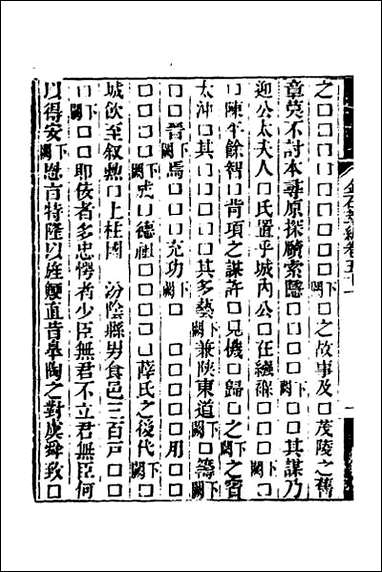 之□□□□□□□闕下□之故事及□茂陵之舊
章莫不討本尋原探賾索隱□□□闕下□□其謀乃
迎公太夫人□氏置乎城內公□在縲□□□□
□陳平餘智□背項之謀許□見機□歸□之闕下之
太沖□其□□□□其多藝闕下兼陝東道闕下□籌闕下
□□晉闕下爲□□□允功闕下□□□□□用□□
□□□□闕下虎□德祖□□□□□薛氏之後代闕下
城飲至敘勲□上柱國　汾陰縣男食邑三百戸□□
□□闕下□□耶佞者多忠愕者少臣無君不立君無臣何
以得安闕下言特隆以旌鯁直昔皋陶之對虞舜致□
金石萃編卷五十一
一